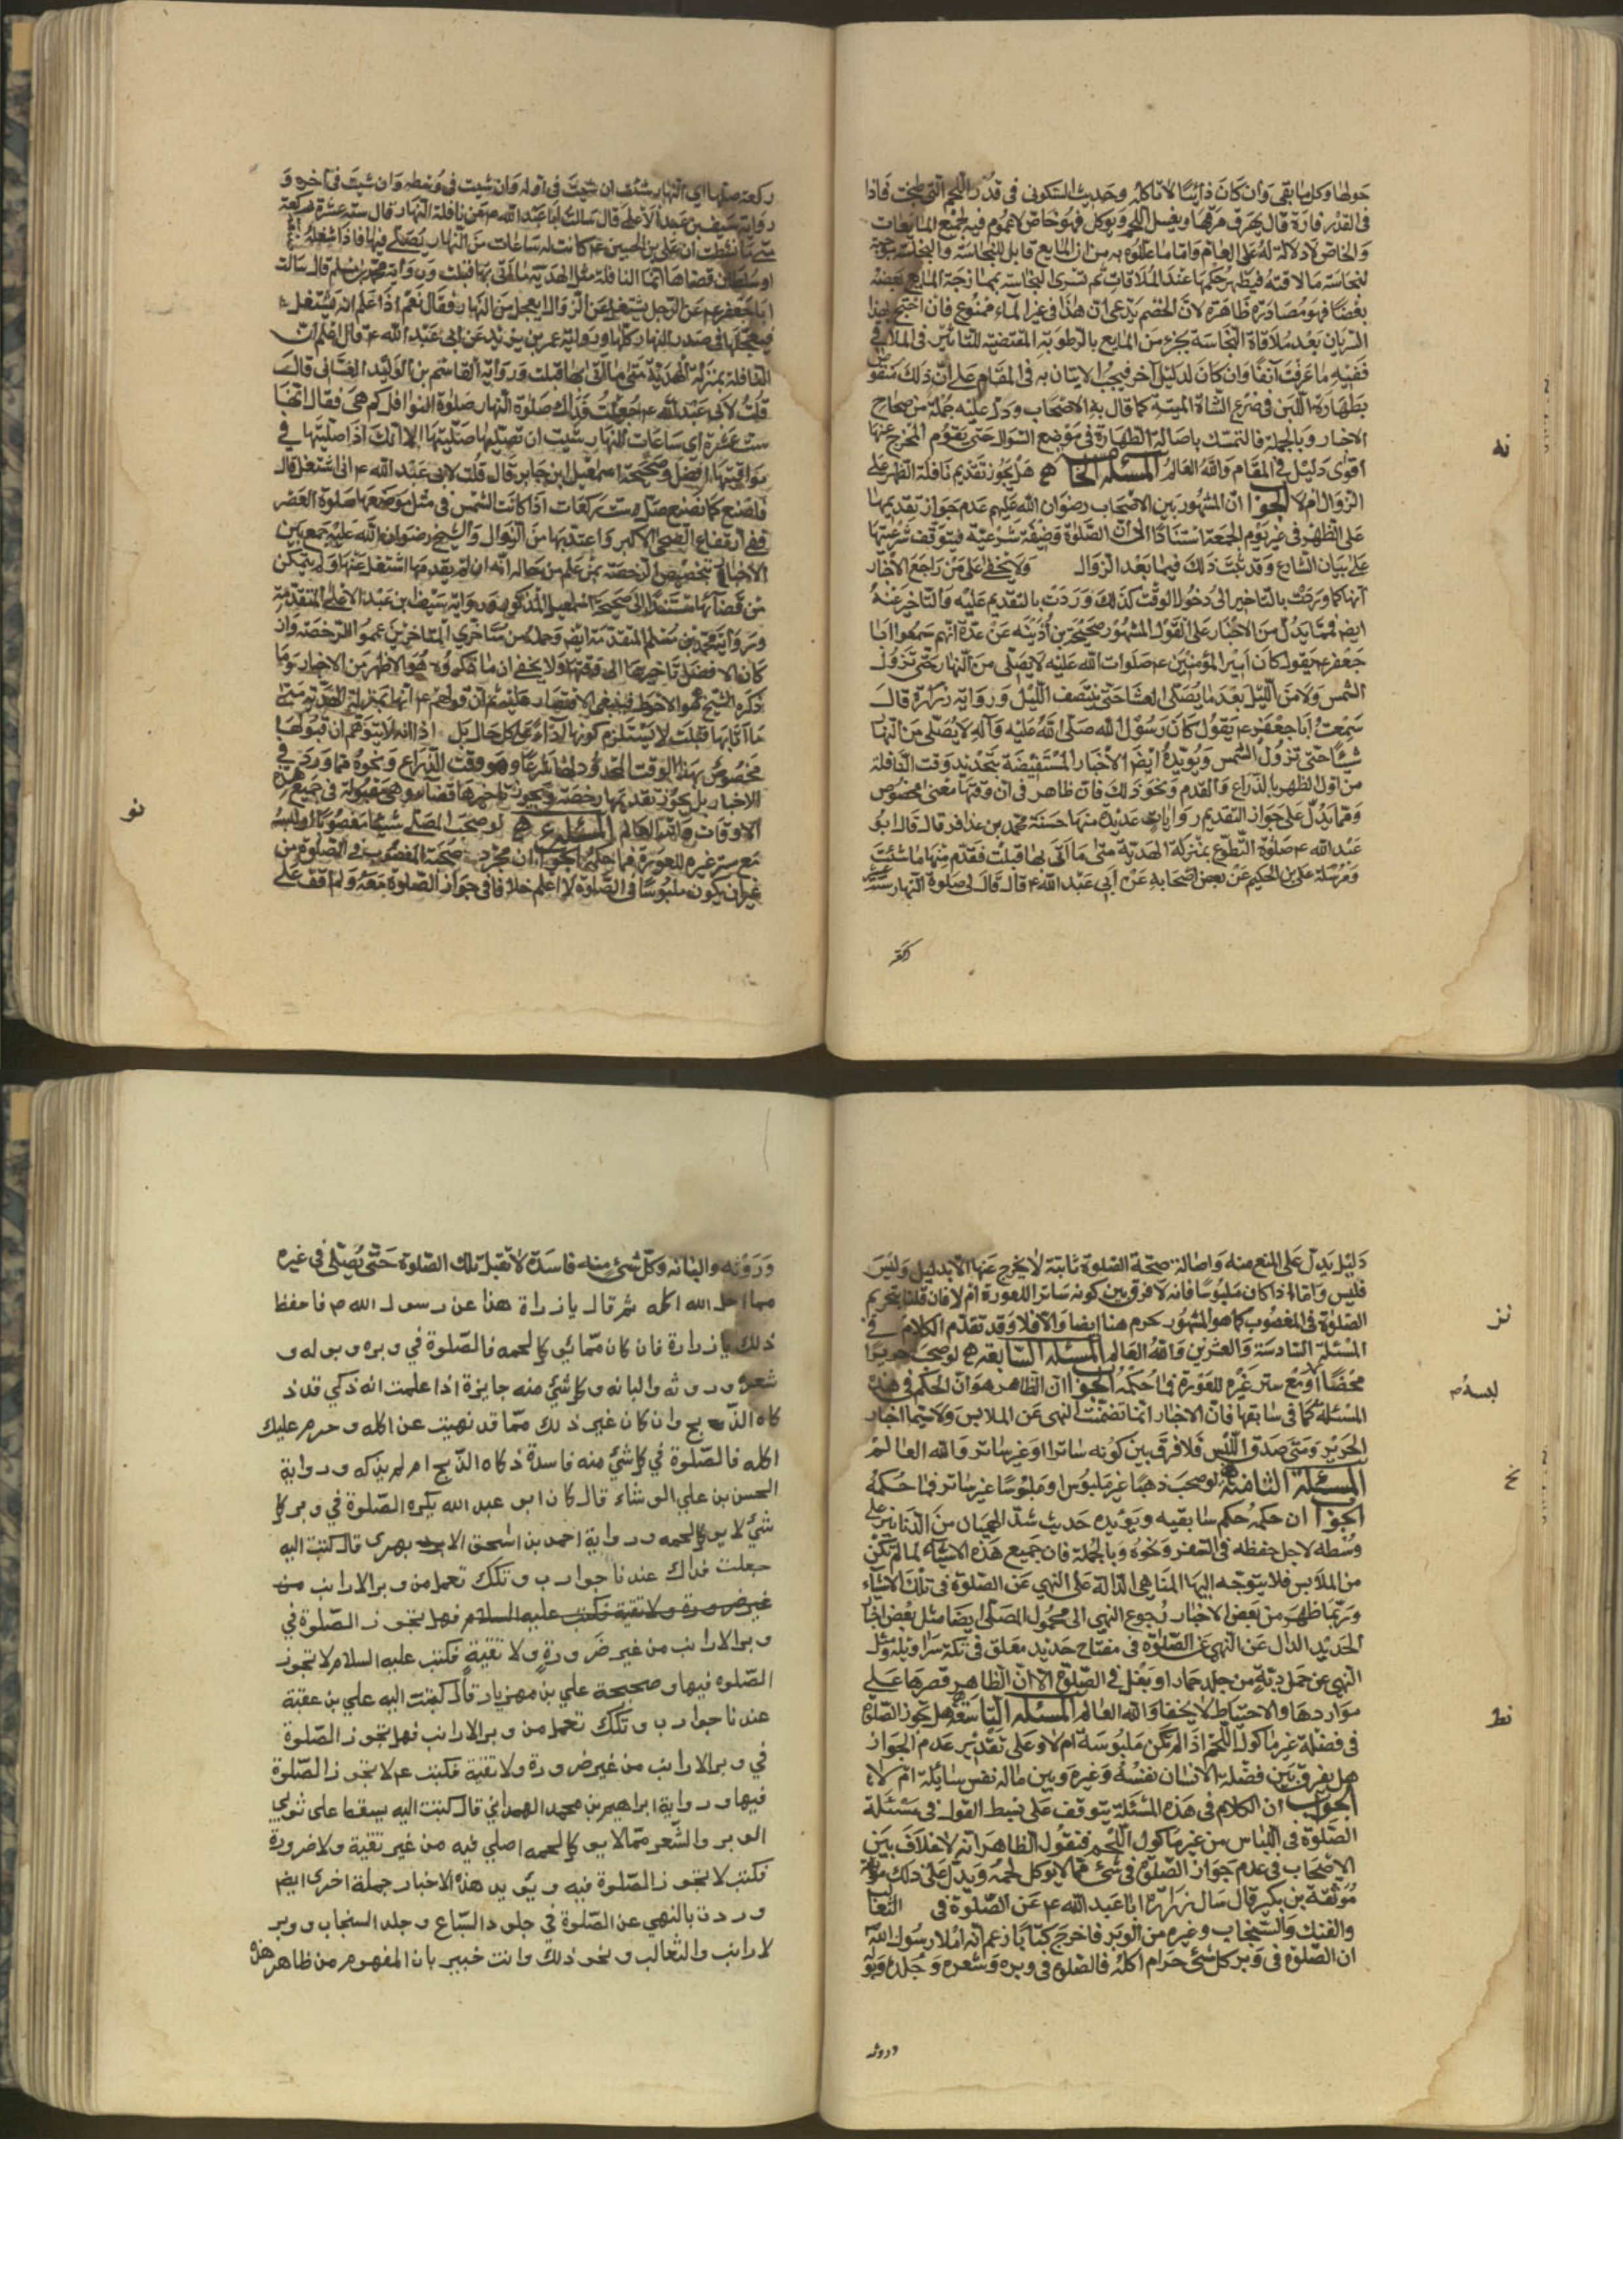 حولها وكل ما بقي وان كان ذائبا لا تاكله وحديث السكوني في قدر اللحم التي طبخت فاذا
في القدر فارة قال يهرق مرقها ويغسل اللحم ويوكل فهو خاص لا عموم فيه لجميع المايعات
والخاص لا دلالة له على العام واما ما عللوه به من ان المايع قابل للنجاسة والنجاسة موجبة
لنجاسة ما لاقته فيظهر حكمها عند الملاقات ثم تسرى النجاسة بممازجة المايع بعضه
بعضا فهو مصادرة ظاهرة لان الخصم يدعى ان هذا في غير الماء ممنوع فان احتج لهذا
السريان بعد ملاقاة النجاسة بجزء من المايع بالرطوبة المقتضية للتاثير في الملاقي
ففيه ما عرفت آنفا وان كان لدليل آخر فيجب الاتيان به في المقام على ان ذلك منقوض
بطهارة اللبن في ضرع الشاة الميتة كما قال به الاصحاب ودل عليه جملة من صحاح
الاخبار وبالجملة فالتمسك باصالة الطهارة في موضع السوال حتى يقوم المخرج عنها
نه
اقوى دليل في المقام والله العالم المسئلة الخا هل يجوز تقديم نافلة الظهر على
الزوال ام لا الجوا ان المشهور بين الاصحاب رضوان الله عليهم عدم جواز تقديمها
على الظهر في غير يوم الجمعة استنادا الى ان الصلوة وضيفة شرعية فيتوقف شرعيتها
على بيان الشارع وقد ثبت ذلك فيما بعد الزوال ولا يخفى على من راجع الاخبار
انها كما وردت بالتاخير الى دخول الوقت كذلك وردت بالتقديم عليه والتاخير عنه
ايضا فمما يدل من الاخبار على القول المشهور صحيحة بن أذينه عن عدة انهم سمعوا ابا
جعفر ع يقول كان امير المؤمنين صلوات الله عليه لا يصلى من النهار حتى تزول
الشمس ولا من الليل بعد ما يصلى العشا حتى ينتصف الليل ورواية زرارة قال
سمعت ابا جعفر ع يقول كان رسول الله صلى الله عليه وآله لا يصلى من النهار
شيئا حتى تزول الشمس ويؤيده ايضا الاخبار المستفيضة بتحديد وقت النافلة
من اول الظهر بالذراع والقدم ونحو ذلك فان ظاهر في ان وقتها معين مخصوص
ومما يدل على جواز التقديم روايات عديدة منها حسنة محمد بن عذافر قال قال ابو
عبد الله ع صلوة التطوع بمنزلة الهدية متى ما اتى بها قبلت فقدم منها ما شئت
ومرسلة علي بن الحكيم عن بعض اصحابه عن ابي عبد الله ع قال قال لي صلوة النهار ست عشر
ركعة صلها اي النهار شئت ان شئت في اوله وان شئت في وسطه وان شئت في آخره و
رواية سيف بن عبد الاعلى قال سالت ابا عبد الله ع عن نافلة النهار قال ستة عشرة ركعة
متى ما نشطت ان علي بن الحسين ع كانت له ساعات من النهار يصلي فيها فاذا شغله
او سلطان قضاها انما النافلة مثل الهدية متى ما اتى بها قبلت ورواية محمد بن مسلم قال سالت
ابا جعفر ع عن الرجل يشتغل عن الزوال ايعجل من النهار فقال نعم اذا علم انه يشتغل
فيعجلها في صدر النهار كلها ورواية عمر بن يزيد عن ابي عبد الله ع قال اعلم ان
النافلة بمنزلة الهدية متى ما اتى بها قبلت ورواية القاسم بن الوليد الغساني قال
قلت لابي عبد الله ع جعلت فداك صلوة النهار صلوة النوافل كم هي فقال انها
ست عشرة اي ساعات النهار شئت ان تصليها صليتها الا انك اذا صليتها في
مواقيتها افضل وصحيحة اسمعيل بن جابر قال قلت لابي عبد الله ع اني اشتغل قال
فاصنع كما نصنع صل ست ركعات اذا كانت الشمس في مثل موضعها صلوة العصر
ففي ارتفاع الضحى الاكبر واعتد بها من الزوال والشيخ رضوان الله عليه جمع بين
الاخبار بتخصيص الرخصة بمن علم من حاله انه ان لم يقدمها اشتغل عنها ولم يتمكن
من قضائها مستندا الى صحيحة اسمعيل المذكورة ورواية سيف بن عبد الاعلى المتقدمة
ورواية محمد بن مسلم المتقدمة ايض وجملة من متاخري المتاخرين عموا الرخصة وان
كان الافضل تاخيرها الى وقتها ولا يخفى ان ما ذكروه هو الاظهر من الاخبار وما
ذكره الشيخ هو الاحوط فينبغى الاقتصار عليه ثم ان قولهم ع انها بمنزلة الهدية متى
ما اتى بها قبلت لا يستلزم كونها اداء على كل حال بل اذ انه لا يتوهم ان قبولها
مخصوص بهذا الوقت المحدود لها شرعا وهو وقت الذراع ونحوه مما ورد في
الاخبار بل يجوز تقديمها رخصة ويجوز تاخيرها قضاء وهي مقبولة في جميع هذه
نو
الاوقات والله العالم المسئلة لو صحب المصلي شيئا مغصوبا او لبسه
مع ستر غيره للعورة فما حكمه الجوا ان مجرد صحبة المغصوب في الصلوة من
غير ان يكون ملبوسا في الصلوة لا اعلم خلافا في جواز الصلوة معه ولم اقف على
دليل يدل على المنع منه واصالة صحة الصلوة ثابتة لا يخرج عنها الا بدليل وليس
فليس واما اذا كان ملبوسا فانه لا فرق بين كونه ساتر اللعورة ام لا فان قلنا بتحريم
نز
الصلوة في المغصوب كما هو المشهور حرم هنا ايضا والا فلا وقد تقدم الكلام في
المسئلة السادسة والعشرين والله العالم المسئلة السابعة لو صحب حريرا
لبسه م
محضا او مع ستر غيره للعورة فما حكمه الجوا ان الظاهر هو ان الحكم في هذه
المسئلة كما في سابقها فان الاخبار انما تضمنت النهى عن الملابس ولا سيما اخبار
الحرير ومتى صدق اللبس فلا فرق بين كونه ساترا او غير ساتر والله العالم
نح
المسئلة الثامنة لو صحب ذهبا غير ملبوس او ملبوسا غير ساتر فما حكمه
الجوا ان حكمه حكم سابقيه ويؤيده حديث شد الهميان من الدنانير على
وسطه لاجل حفظه في السفر ونحوه وبالجملة فان جميع هذه الاشياء لما لم تكن
من الملابس فلا يتوجه اليها المناهي الدالة على النهي عن الصلوة في تلك الاشياء
وربما ظهر من بعض الاخبار رجوع النهي الى محمول المصلى ايضا مثل بعض اخبا
الحديد الدال عن النهي عن الصلوة في مفتاح حديد معلق في تكة سراويله ومثل
النهي عن حمل دبة من جلد حمار او بغل في الصلوة الا ان الظاهر قصرها على
نط
مواردها والاحتياط لا يخفا والله العالم المسئلة التاسعة هل تجوز الصلوة
في فضلة غير ماكول اللحم اذا لم تكن ملبوسة ام لا وعلى تقدير عدم الجواز
هل يفرق بين فضلة الانسان نفسه وغيره وبين ماله نفس سايلة ام لا
الجواب ان الكلام في هذه المسئلة يتوقف على بسط القول في مسئلة
الصلوة في اللباس من غير ماكول اللحم فنقول الظاهر انه لا خلاف بين
الاصحاب في عدم جواز الصلوة في شئ مما لا يوكل لحمه ويدل على ذلك
موثقة بن بكير قال سال زرارة ابا عبد الله ع عن الصلوة في الثعالب
والفنك والسنجاب وغيره من الوبر فاخرج كتابا زعم انه املا رسول الله
ان الصلوة في وبر كل شئ حرام اكله فالصلوة في وبره وشعره وجلده وبوله
وروثه
وروثه والبانه وكل شئ منه فاسدة لا تقبل تلك الصلوة حتى يصلى في غيره
مما احل الله اكله ثم قال يا زرارة هذا عن رسول الله ص فاحفظ
ذلك يا زرارة فان كان مما يوكل لحمه فالصلوة في وبره وبوله و
شعره وروثه والبانه وكل شئ منه جايزة اذا علمت انه ذكي قد ذ
كاه الذبح وان كان غير ذلك مما قد نهيت عن اكله وحرم عليك
اكله فالصلوة في كل شئ منه فاسدة ذكاه الذبح ام لم يذكه ورواية
الحسن بن علي الوشاء قال كان ابو عبد الله يكره الصلوة في وبر كل
شئ لا يوكل لحمه ورواية احمد بن اسحق الابهرى قال كتبت اليه
جعلت فداك عندنا جوارب وتكك تعمل من وبر الارانب من
غير ضرورة ولا تقية فكتب عليه السلام فهل تجوز الصلوة في
وبر الارانب من غير ضرورة ولا تقية فكتب عليه السلام لا تجوز
الصلوه فيها وصحيحة علي بن مهزيار قال كتبت اليه علي بن عقبة
عندنا جوارب وتكك تعمل من وبر الارانب فهل تجوز الصلوة
في وبر الارانب من غير ضرورة ولا تقية فكتب ع لا تجوز الصلوة
فيها ورواية ابراهيم بن محمد الهمداني قال كتبت اليه يسقط على ثوبي
الوبر والشعر مما لا يوكل لحمه اصلي فيه من غير تقية ولا ضرورة
فكتب لا تجوز الصلوة فيه ويؤيد هذه الاخبار جملة اخرى ايضم
وردت بالنهي عن الصلوة في جلود السباع وجلد السنجاب ووبر
لارانب والثعالب ونحو ذلك وانت خبير بان المفهوم من ظاهر هذه